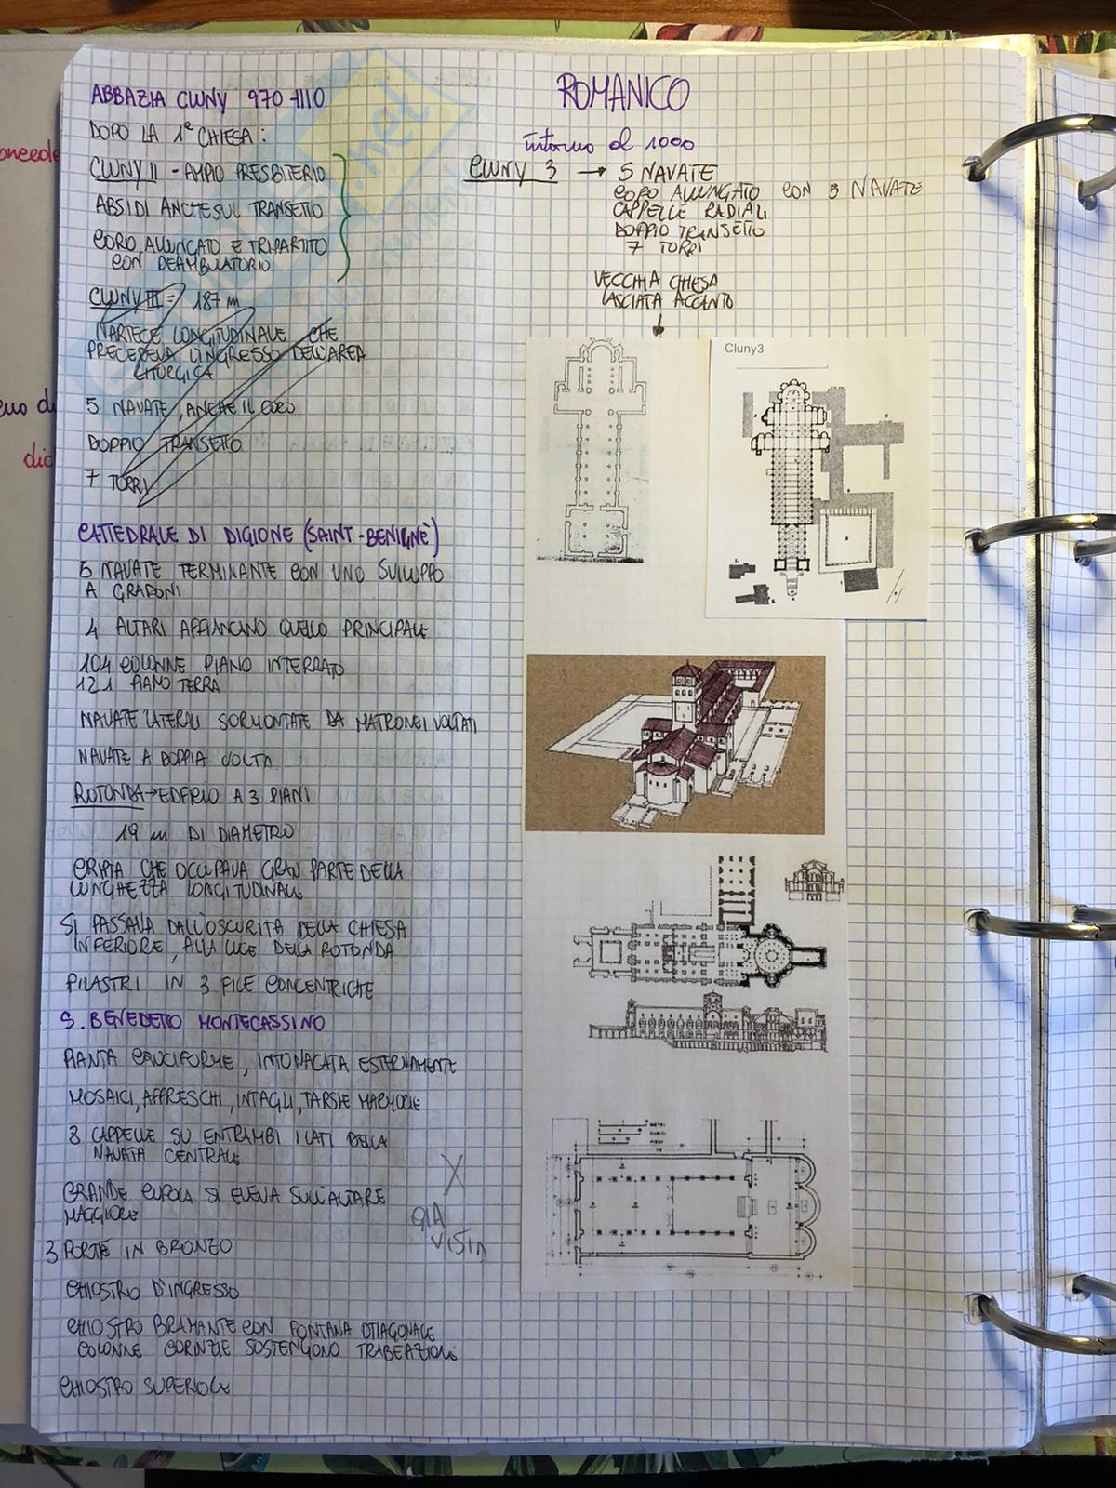 ROMANICO
intorno al 1000
ABBAZIA CLUNY 970-1110
DOPO LA 1ª CHIESA:
CLUNY II - AMPIO PRESBITERIO
ABSIDI ANCHE SUL TRANSETTO
CORO ALLUNGATO E TRIPARTITO
CON DEAMBULATORIO
CLUNY III = 187 m
NARTECE LONGITUDINALE CHE
PRECEDEVA L'INGRESSO DELL'AREA
LITURGICA
5 NAVATE, ANCHE IL CORO
DOPPIO TRANSETTO
7 TORRI
CLUNY 3 → 5 NAVATE
CORO ALLUNGATO CON 3 NAVATE
CAPPELLE RADIALI
DOPPIO TRANSETTO
7 TORRI
VECCHIA CHIESA
LASCIATA ACCANTO
Cluny3
CATTEDRALE DI DIGIONE (SAINT-BENIGNÈ)
5 NAVATE TERMINANTE CON UNO SVILUPPO
A GRADONI
4 ALTARI AFFIANCANO QUELLO PRINCIPALE
104 COLONNE PIANO INTERRATO
121 PIANO TERRA
NAVATE LATERALI SORMONTATE DA MATRONEI VOLTATI
NAVATE A DOPPIA VOLTA
ROTONDA → EDIFICIO A 3 PIANI
19 m DI DIAMETRO
CRIPTA CHE OCCUPAVA GRAN PARTE DELLA
LUNGHEZZA LONGITUDINALE
SI PASSAVA DALL'OSCURITÀ DELLA CHIESA
INFERIORE, ALLA LUCE DELLA ROTONDA
PILASTRI IN 3 FILE CONCENTRICHE
S. BENEDETTO MONTECASSINO
PIANTA CRUCIFORME, INTONACATA ESTERNAMENTE
MOSAICI, AFFRESCHI, INTAGLI, TARSIE MARMOREE
3 CAPPELLE SU ENTRAMBI I LATI DELLA
NAVATA CENTRALE
GRANDE CUPOLA SI ELEVA SULL'ALTARE
MAGGIORE
3 PORTE IN BRONZO
CHIOSTRO D'INGRESSO
CHIOSTRO BRAMANTE CON FONTANA OTTAGONALE
COLONNE CORINZIE SOSTENGONO TRABEAZIONE
CHIOSTRO SUPERIORE
X
GIÀ
VISTA